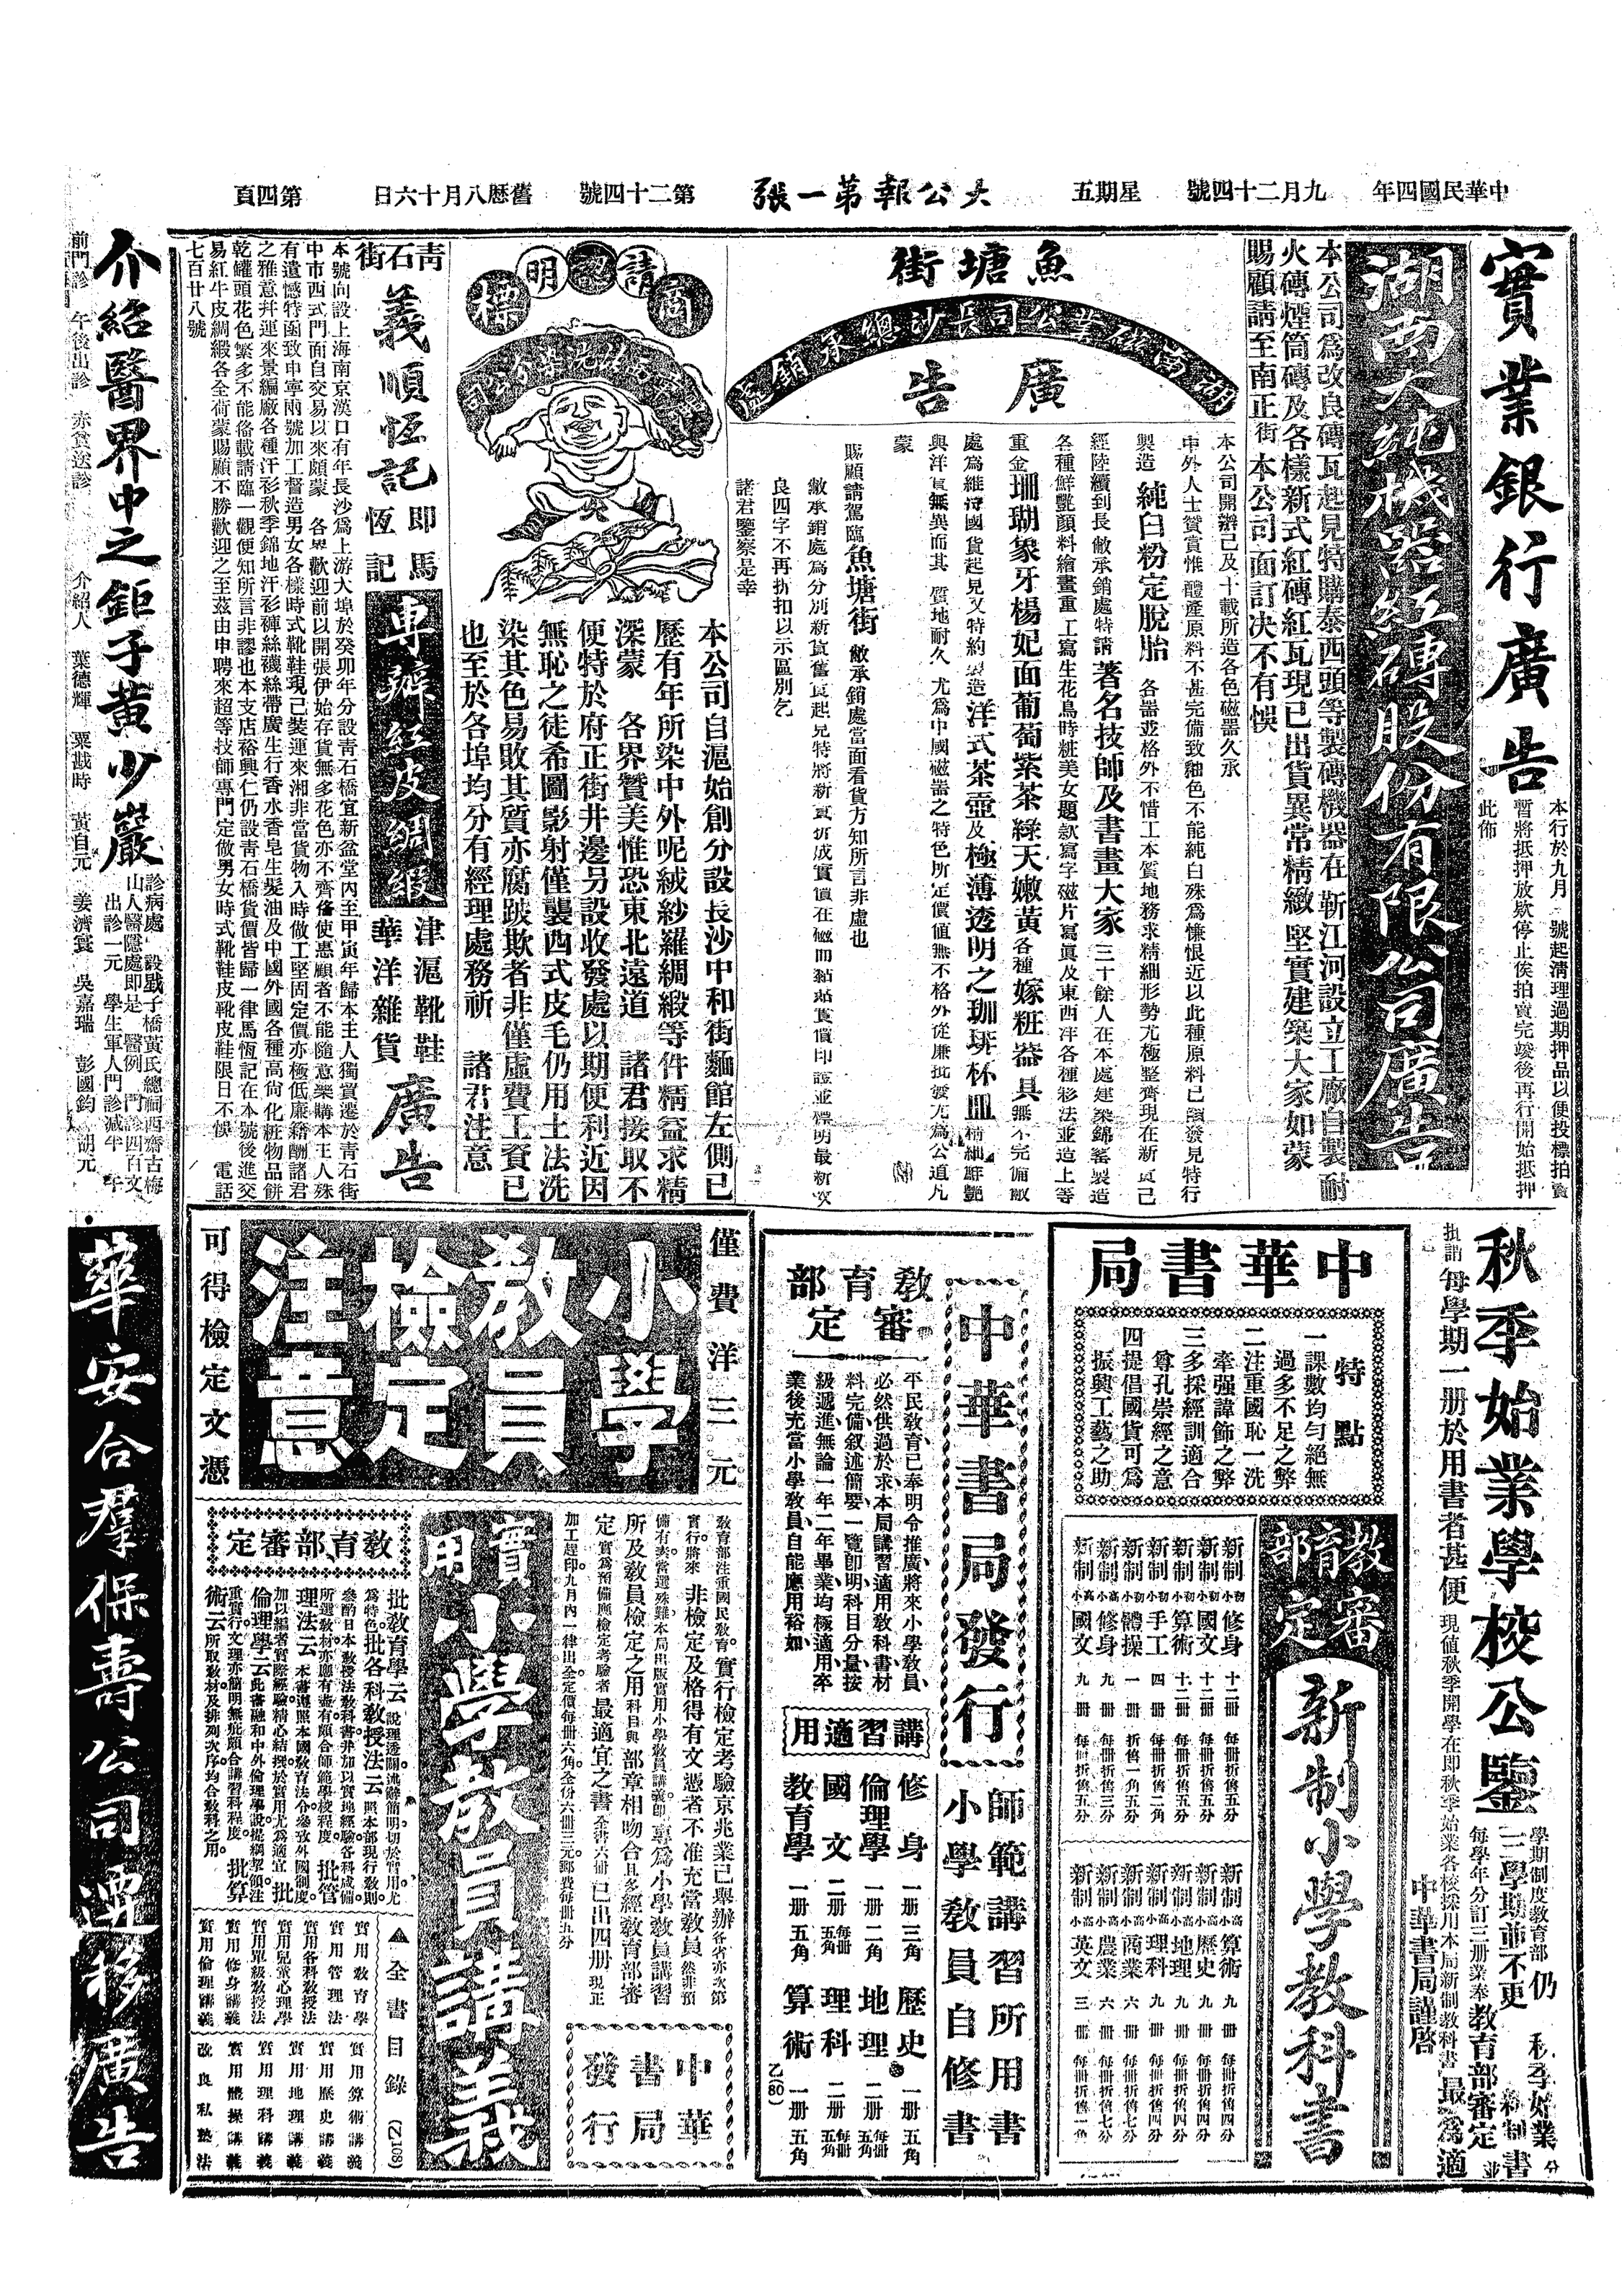 中華民國四年
九月二十四號
星期五
大公報第一張
第二十四號
舊歷八月十六日
第四頁
實業銀行廣告
本行於九月 號起淸理過期押品以便投標拍賣
暫將抵押放欵停止俟拍賣完竣後再行開始抵押
此佈
湖南大純機器紅磚股份有限公司廣告
本公司爲改良磚瓦起見特購泰西頭等製磚機器在 靳江河設立工廠自製耐
火磚煙筒磚及各樣新式紅磚紅瓦現已出貨異常精緻堅實建築大家如蒙
賜顧請至南正街 本公司面訂決不有悞
魚塘街
湖南磁業公司長沙總承銷處
廣告
本公司開辦已及十載所造各色磁器久承
中外人士賞賞惟 體產原料不甚完備致釉色不能純白殊爲慊恨近以此種原料已 發見特行
製造 純白粉定脫胎 各器並格外不惜工本質地務求精細形勢尤極整齊現在新貨已
經陸續到長敝承銷處特請 著名技師及書畫大家 三十餘人在本處建築錦窰製造
各種鮮艷顏料繪畫重工寫生花鳥時粧美女題款寫字磁片寫眞及東西洋各種彩法並造上等
重金珊瑚象牙楊妃面葡萄紫茶綠天嫩黃各種 嫁粧器具 無不完備敝
處爲維持國貨起見又特約 造洋式茶壺及極薄透明之珈琲杯皿 精細鮮艷
與洋貨無異而其 質地耐久 尤爲中國磁器之特色所定價值無不格外從廉批發尤爲公道凡
蒙
賜顧請駕臨 魚塘街 敝承銷處當面看貨方知所言非虛也
敝承銷處爲分別新貨舊貨起見特將新貨折成實價在磁面黏貼貨價印證並標明最新次
良四字不再折扣以示區別乞
諸君鑒察是幸
商標
請認明
本公司自滬始創分設長沙中和街麵館左側已
歷有年所染中外呢絨紗羅綢緞等件精益求精
深蒙 各界贊美惟恐東北遠道 諸君接取不
便特於府正街井邊另設收發處以期便利近因
無恥之徒希圖影射僅襲西式皮毛仍用土法洗
染其色易敗其質亦腐跛欺者非僅虛費工資已
也至於各埠均分有經理處務祈 諸君注意
靑石街
義順恆記
即馬恆記
專辦紅皮綢緞
津滬靴鞋
華洋雜貨
廣告
本號向設上海南京漢口有年長沙爲上游大埠於癸卯年分設靑石橋宜新盆堂內至甲寅年歸本主人獨買遷於靑石街
中市西式門面自交易以來頗蒙 各界歡迎前以開張伊始存貨無多花色亦不齊俻使惠顧者不能隨意樂購本主人殊
有遺憾特函致申寧兩號加工督造男女各樣時式靴鞋現已裝運來湘非當貨物入時做工堅固定價亦極低廉藉酬諸君
之雅意幷運來景綸廠各種汗衫秋季錦地汗衫褲絲襪絲帶廣生行香水香皂生髮油及中國外國各種高尙化粧物品餅
乾罐頭花色繁多不能俻載請臨一觀便知所言非謬也本支店裕興仁仍設靑石橋貨價皆歸一律馬恆記在本號後進交
易紅牛皮綢緞各全衖蒙賜顧不勝歡迎之至茲由申聘來超等技師專門定做男女時式靴鞋皮靴皮鞋限日不悞 電話
七百廿八號
介紹醫界中之鉅子黃少巖
診病處 設戥子橋黃氏總祠西齋古梅
山人醫隱處即是 醫例 門診四百文
出診一元 學生軍人門診減半 午
前門診 午後出診 赤貧送診
介紹人 葉德輝 粟戡時 黃自元 姜濟寰 吳嘉瑞 彭國鈞 胡元
華安合羣保壽公司遷移廣告
秋季始業學校公鑒
學期制度教育部仍
二學期並不更
每學年分訂三册業奉教育部審定
每學期一册於用書者甚便
現値秋季開學在即秋季始業各校採用本局新制教科書最爲適
中華書局謹啓
中華書局
特點
一課數均勻絕無
過多不足之弊
二注重國恥一洗
牽强諱飾之弊
三多採經訓適合
尊孔崇經之意
四提倡國貨可爲
振興工藝之助
教育部審定
新制小學教科書
新制初小修身 十二册 每册折售五分
新制初小國文 十二册 每册折售五分
新制初小算術 十二册 每册折售五分
新制初小手工 四册 每册折售二角
新制初小體操 一册 折售一角五分
新制高小修身 九册 每册折售三分
新制高小國文 九册 每册折售五分
新制高小算術 九册 每册折售四分
新制高小歷史 九册 每册折售四分
新制高小地理 九册 每册折售四分
新制高小理科 九册 每册折售四分
新制高小商業 六册 每册折售七分
新制高小農業 六册 每册折售七分
新制高小英文 三册 每册折售一角
中華書局發行
師範講習所用書
小學教員自修書
教育部審定
平民敎育已奉明令推廣將來小學敎員
必然供過於求本局講習適用敎科書材
料完備叙述簡要一覽卽明科目分量按
級遞進無論一年二年畢業均極適用卒
業後充當小學敎員自能應用裕如
講習適用
修身 一册 三角
倫理學 一册 二角
國文 二册 每册五角
敎育學 一册 五角
歷史 一册 五角
地理 二册 每册五角
理科 二册 每册五角
算術 一册 五角
(乙80)
僅費洋三元
小學敎員檢定注意
可得檢定文憑
敎育部注重國民敎育。實行檢定考驗京兆業已舉辦各省亦次第
實行。將來 非檢定及格得有文憑者不准充當敎員 然非預
備有素當選殊難本局出版實用小學敎員講義卽 專爲小學敎員講習
所及敎員檢定之用 科目與 部章相吻合且多經敎育部審
定 實爲預備應檢定考驗者 最適宜之書 全書六册 已出四册 現正
加工趕印九月內一律出全定價每册六角全份六册三元郵費每册五分
中華書局發行
實用小學敎員講義
敎育部審定
批敎育學云 說理透闢疏解簡明切於實用尤
爲特色。批各科敎授法云 照本部現行敎則
參酌日本敎授法敎科書并加以實地經驗各科成備
所選敎材亦應有盡有頗合師範學校程度。批管
理法云 本書遵照本國敎育法令參攷外國制度。
加以編者實際經驗精心結撰於實用尤爲適宜。批
倫理學云 此書融和中外倫理學說提綱挈領注
重實行文理亦簡明無疵頗合講習科程度。批算
術云 所取敎材及排列次序均合敎科之用。
全書目錄 (乙108)
實用敎育學
實用管理法
實用各科敎授法
實用兒童心理學
實用單級敎授法
實用修身講義
實用倫理講義
實用算術講義
實用歷史講義
實用地理講義
實用理科講義
實用體操講義
改良私塾法